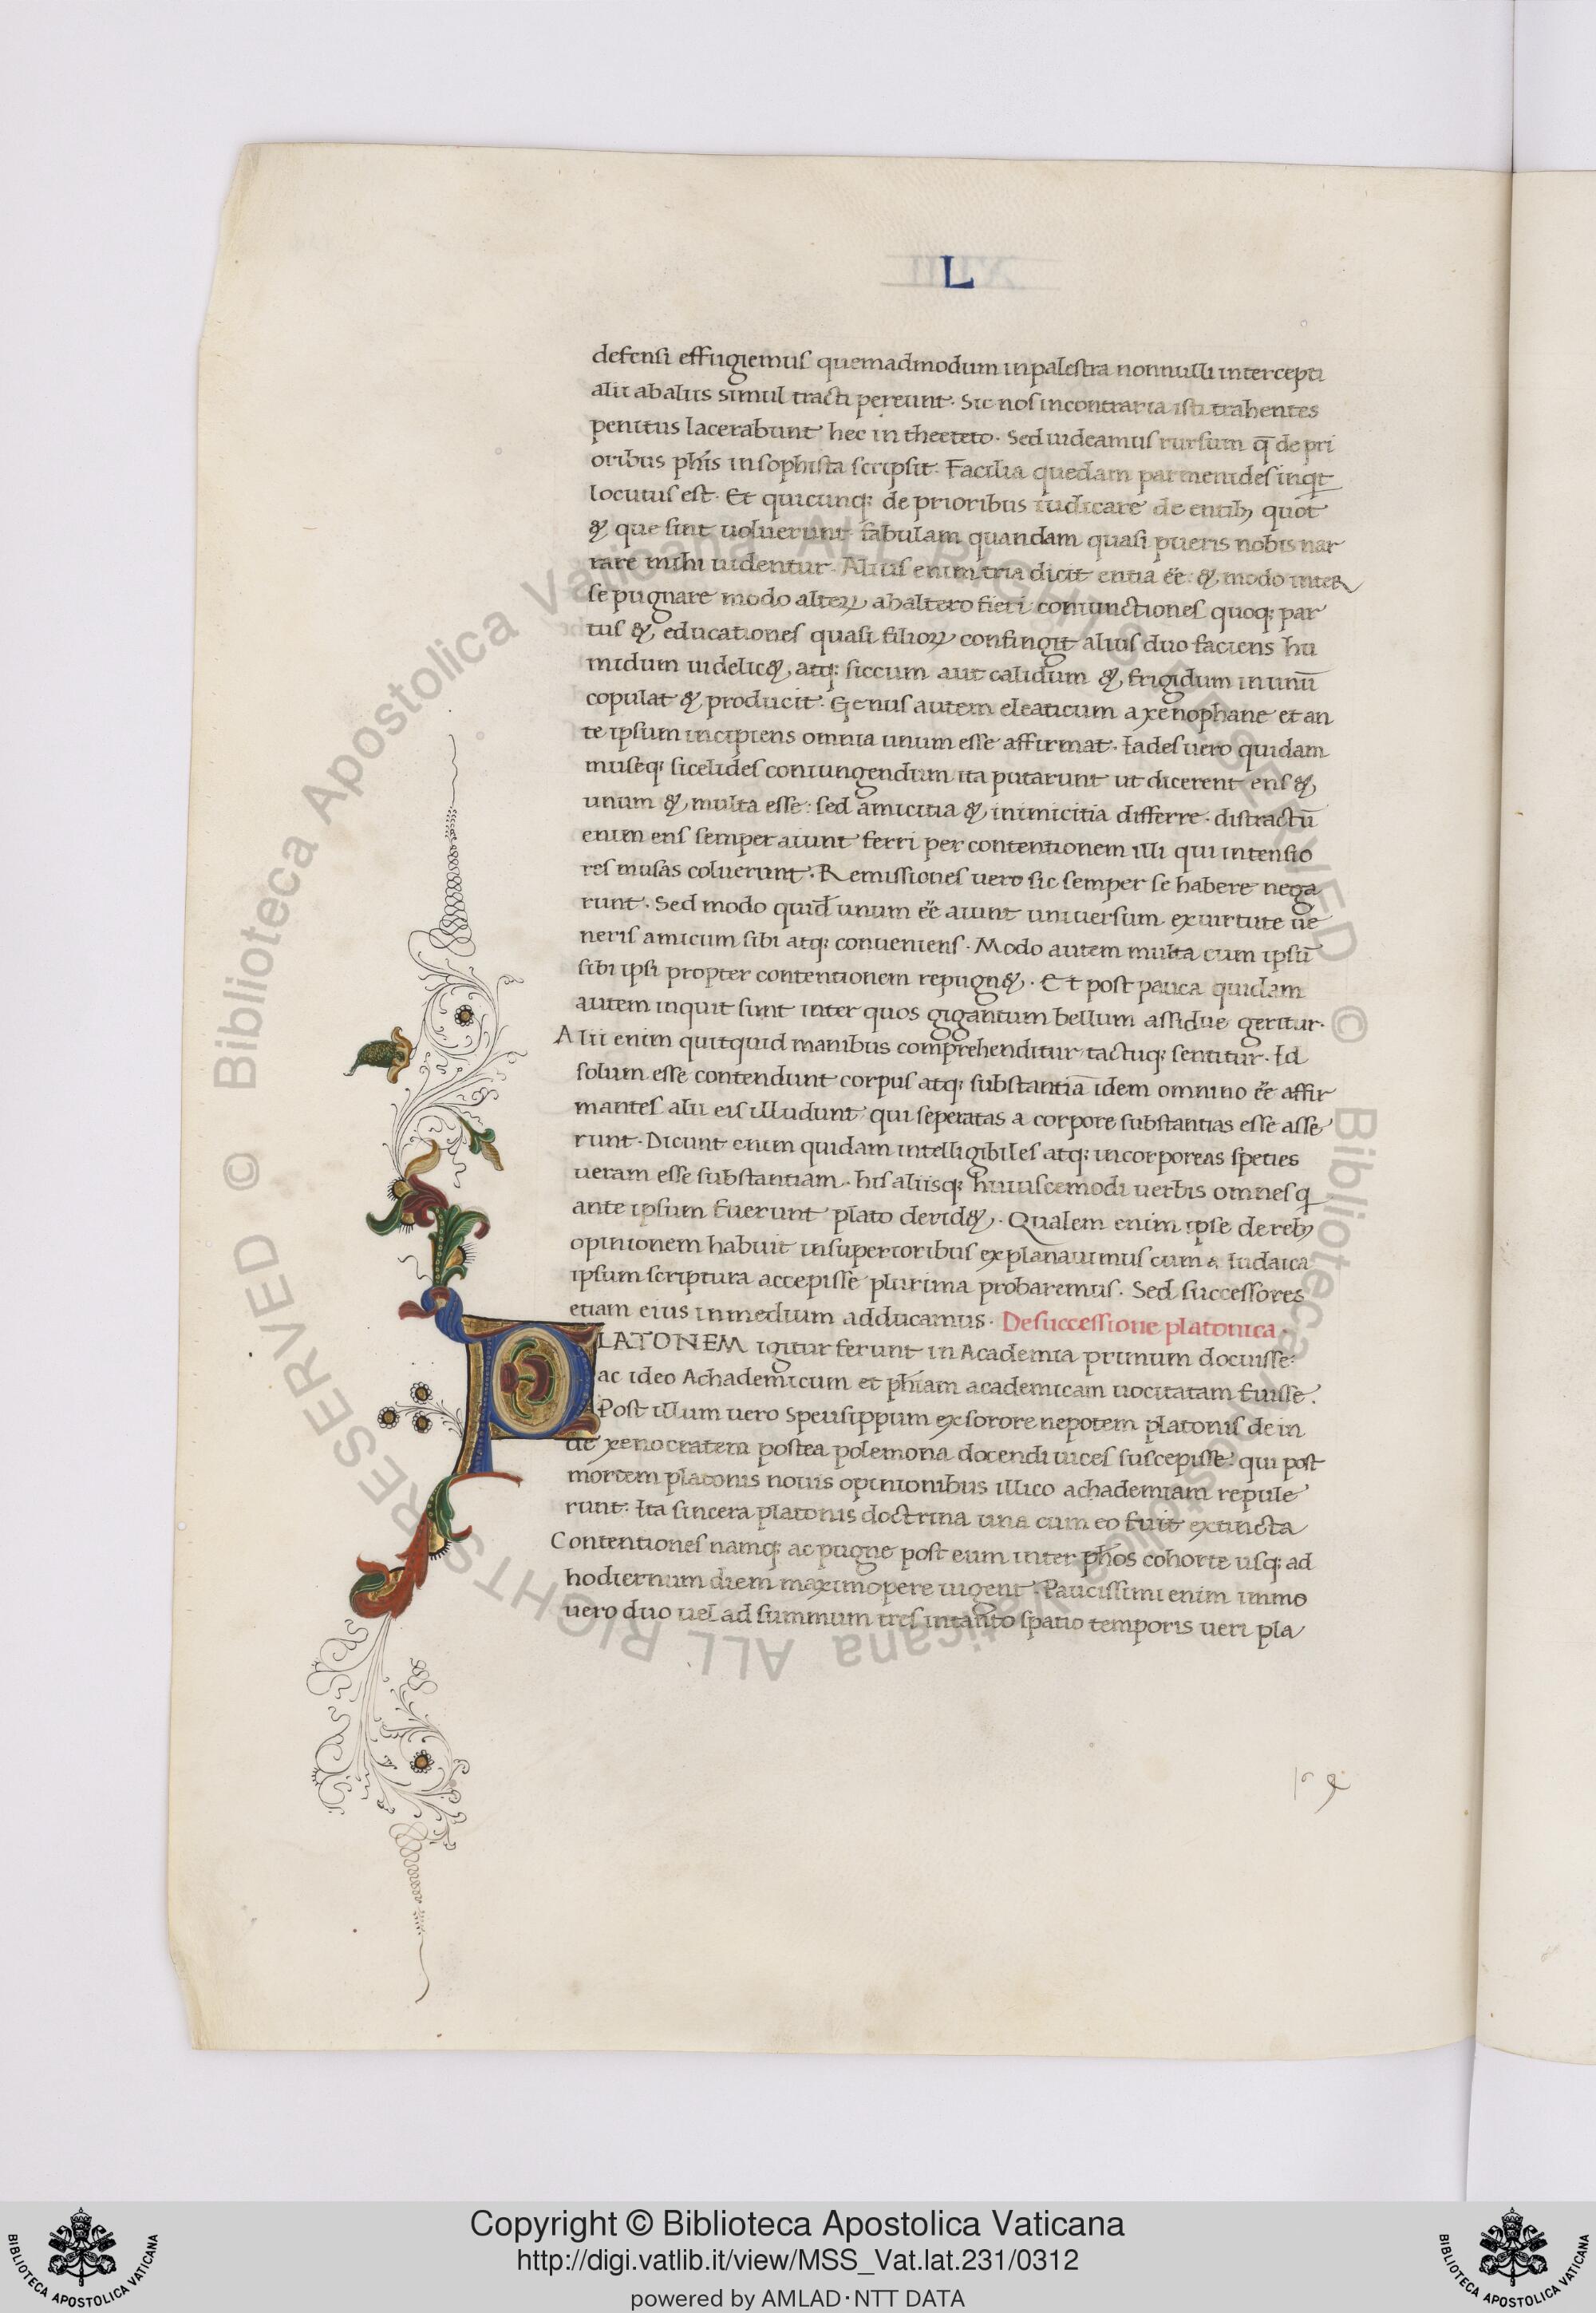 L
defensi effugiemus quemadmodum in palestra nonnulli intercepti
alii ab aliis simul tracti pereunt. Sic nos in contraria isti trahentes
penitus lacerabunt hec in theeteto. Sed uideamus rursum q̄ de pri
oribus phīs in sophista scripsit. Facilia quedam parmenides inqt
locutus est. Et quicunq; de prioribus iudicare de entib; quot
& que sint uoluerunt fabulam quandam quasi pueris nobis nar
rare mihi uidentur. Alius enim tria dicit entia ēē: & modo inter
se pugnare modo alterꝝ ab altero fieri coniunctiones quoq; par
tus & educationes quasi filioꝝ confingit alius duo faciens hu
midum uidelic& atq; siccum aut calidum & frigidum in unū
copulat & producit. Genus autem eleaticum a xenophane et an
te ipsum incipiens omnia unum esse affirmat. Iades uero quidam
museq; sicelides coniungendum ita putarunt ut dicerent ens &
unum & multa esse: sed amicitia & inimicitia differre. distractū
enim ens semper aiunt ferri per contentionem illi qui intensio
res musas coluerunt. Remissiones uero sic semper se habere nega
runt. Sed modo quid unum ēē aiunt uniuersum ex uirtute ue
neris amicum sibi atq; conueniens. Modo autem multa cum ipsū
sibi ipsi propter contentionem repugn&. Et post pauca quidam
autem inquit sunt inter quos gigantum bellum assidue geritur.
Alii enim quitquid manibus comprehenditur tactuq; sentitur. Id
solum esse contendunt corpus atq; substantiā idem omnino ēē affir
mantes alii eis illudunt qui seperatas a corpore substantias esse asse
runt. Dicunt enim quidam intelligibiles atq; incorporeas speties
ueram esse substantiam. his aliisq; huiuscemodi uerbis omnes q
ante ipsum fuerunt plato derid&. Qualem enim ipse de reb;
opinionem habuit in superioribus explanauimus cum a Iudaica
ipsum scriptura accepisse plurima probaremus. Sed successores
etiam eius in medium adducamus. De successione platonica.
PLATONEM igitur ferunt in Academia primum docuisse:
ac ideo Achademicum et phīam academicam uocitatam fuisse.
Post illum uero Speusippum ex sorore nepotem platonis dein
de xenocratem postea polemona docendi uices suscepisse: qui post
mortem platonis nouis opinionibus illico achademiam repule
runt. Ita sincera platonis doctrina una cum eo fuit extincta
Contentiones namq; ac pugne post eum inter phōs cohorte usq; ad
hodiernum diem maximopere uigent. Paucissimi enim immo
uero duo uel ad summum tres in tanto spatio temporis ueri pla
© Biblioteca Apostolica Vaticana ALL RIGHTS RESERVED
© Biblioteca Apostolica Vaticana ALL RIGHTS RESERVED
Copyright © Biblioteca Apostolica Vaticana
http://digi.vatlib.it/view/MSS_Vat.lat.231/0312
powered by AMLAD·NTT DATA
BIBLIOTECA APOSTOLICA VATICANA
BIBLIOTECA APOSTOLICA VATICANA